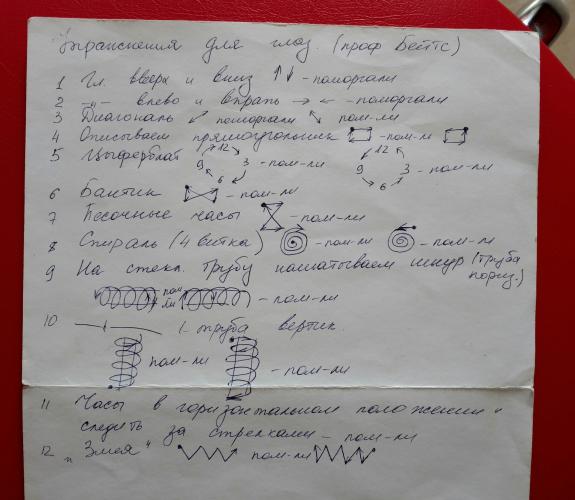 Упражнения для глаз. (проф Бейтс)
1 Гл. вверх и вниз ↑↓ - поморгали
2 -"- влево и вправо → ← - поморгали
3 Диагональ ↙ поморгали ↖ пом-ли
4 Описываем прямоугольник - пом-ли
5 Цыферблат 9 12 3 6 - пом-ли 9 12 3 6 - пом-ли
6 Бантик - пом-ли
7 Песочные часы - пом-ли
8 Спираль (4 витка) - пом-ли - пом-ли
9 На стекл. трубу наматываем шнур (труба
пом-ли - пом-ли
10 -"- (-труба вертик.
пом-ли - пом-ли
11 Часы в горизонтальном положении и
следить за стрелками - пом-ли
12 "Змея" пом-ли